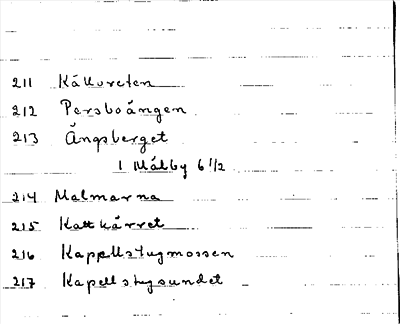 211 Källvreten
212 Persboängen
213 Ängsberget
1 Målby 6 1/2
214 Malmarna
215 Kattkärret
216 Kappellstugmossen
217 Kapellstugsundet